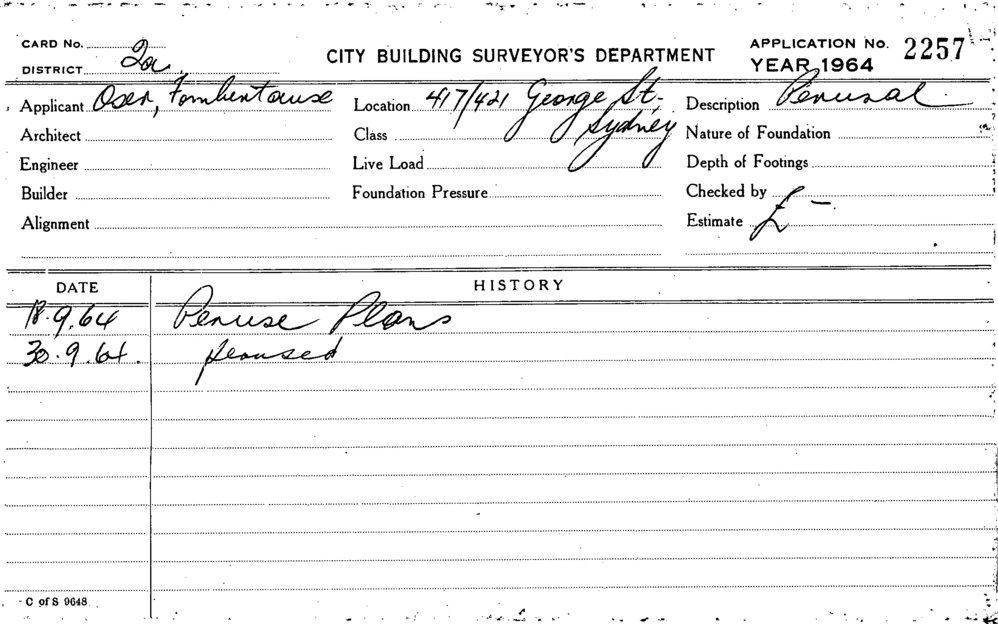 CARD No.
DISTRICT 2a.
CITY BUILDING SURVEYOR'S DEPARTMENT
APPLICATION No. 2257
YEAR 1964
Applicant Oser, Fombertause
Location 417/421 George St.
Sydney
Description Perusal
Architect
Class
Nature of Foundation
Engineer
Live Load
Depth of Footings
Builder
Foundation Pressure
Checked by
Alignment
Estimate £ -
DATE HISTORY
18.9.64 Peruse Plans
30.9.64. perused
C of S 9648